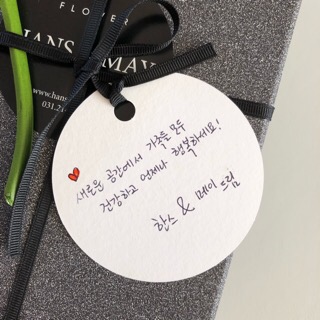 FLOWER
HANS
MAY
www.hans
031.2
새로운 공간에서 가족들 모두
건강하고 언제나 행복하세요!
한스 & 메이 드림